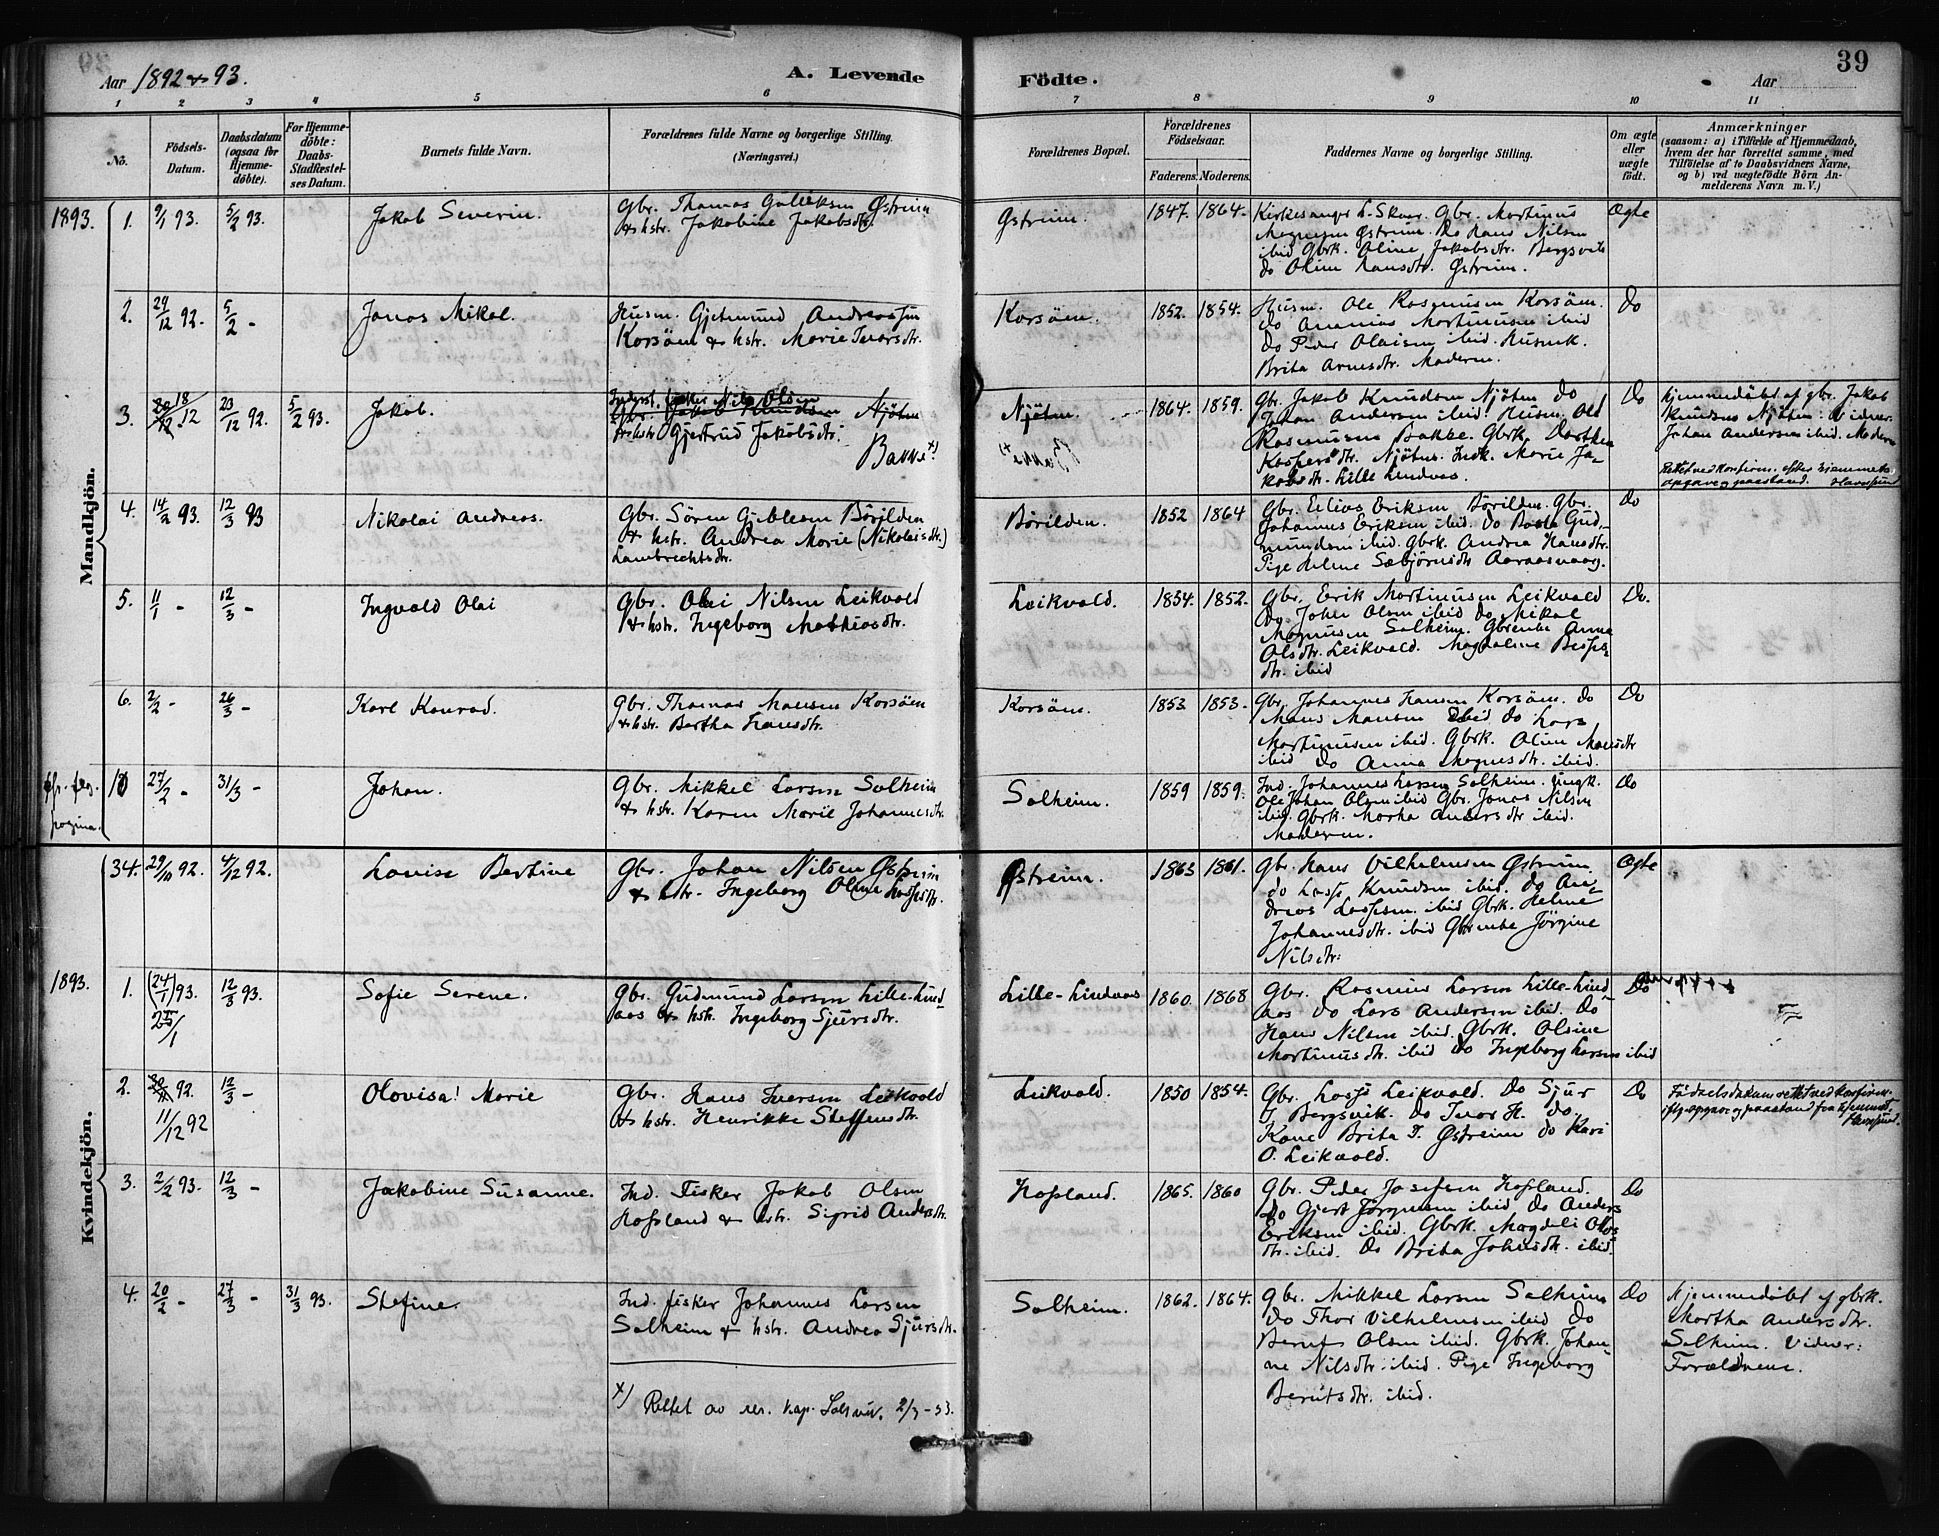 39
Aar 1892 & 93.
A. Levende
Födte.
Aar
1 2 3 4 5 6 7 8 9 10 11
No.
Födsels-
Datum.
Daabsdatum
(ogsaa for
Hjemme-
döbte).
For Hjemme-
döbte:
Daabs-
Stadfæstel-
ses Datum.
Barnets fulde Navn.
Forældrenes fulde Navne og borgerlige Stilling.
(Næringsvei.)
Forældrenes Bopæl.
Forældrenes
Födselsaar.
Faderens. Moderens.
Faddernes Navne og borgerlige Stilling.
Om ægte
eller
uægte
födt.
Anmærkninger
(saasom: a) i Tilfælde af Hjemmedaab,
hvem der har forrettet samme, med
Tilföielse af to Daabsvidners Navne,
og b) ved uægtefödte Börn An-
melderens Navn m. V.)
Mandkjön.
1893. 1. 9/1 93. 5/2 93. Jakob Severin.
Gbr. Thomas Østreim
& hstr. Jakobine Jakobsdtr.
Østreim. 1847. 1864.
Kirkesanger L. Skaar. Gbr. Martinus
Magnesen Østreim. Do Hans Nilsen
ibid Gbrk. Oline Jakobsdtr. Bergsvik
do Oline Hansdtr. Østreim.
Ægte
2. 29/12 92. 5/2 - Jonas Mikal.
Husm. Gjetmund Andreassen
Korsöen & hstr. Marie Ivarsdtr.
Korsöen. 1852. 1854.
Husm. Ole Rasmusen Korsöen.
do Ananias Martinusen ibid
do Peder Olaisen ibid. Husmk.
Brita Arnesdtr. Moderen.
Do
3. 18/12 23/12 92. 5/2 93. Jakob.
Nils Olsen
Gbr. Jakob Knudsen Njöten
& hstr. Gjertrud Jakobsdtr.
Bakke x)
Njöten. 1864. 1859.
Gbr. Jakob Knudsen Njöten Do
Johan Andersen ibid. Husm. Ole
Rasmusen Bakke. Gbrk. Dorthea
Kaspersdtr. Njöten. Indk. Marie Ja-
kobsdtr. Lille Lindaas.
Do
Hjemmedöbt af gbr. Jakob
Knudsen Njöten. Vidner:
Johan Andersen ibid. Moderen
Rettet ved konfirm. efter hjemmets
opgave og paastand.
4. 14/2 93. 12/3 93 Nikolai Andreas.
Gbr. Sören Gjeblesen Börilden
& hstr. Andrea Marie (Nikolaisdtr.)
Lambrechtsdtr.
Börilden. 1852 1864
Gbr. Elias Eriksen Börilden. Gbr.
Johannes Eriksen ibid. Do Gud-
mundsen ibid. Gbrk. Andrea Hansdtr.
Pige Helene Sæbjörnsdtr Aaraasvaag.
Do
5. 11/1 - 12/3 - Ingvald Olai
Gbr. Olai Nilsen Leikvold
& hstr. Ingeborg Mathiasdtr.
Leikvold. 1854. 1852.
Gbr. Erik Martinusen Leikvold
Do John Olsen ibid Do Mikal
Magnusen Solheim. Gbrenke Anna
Olsdtr. Leikvold. Magdalene
dtr. ibid
Do.
6. 2/2 - 26/3 - Karl Konrad.
Gbr. Thomas Monsen Korsöen
& hstr. Bertha Hansdtr.
Korsöen. 1853. 1853.
Gbr. Johannes Hansen Korsöen. Do
Mons Monsen ibid Do Lars
Martinusen ibid. Gbrk. Oline Monsdtr
ibid Do Anna Magnusdtr. ibid.
Do
pagina.
10 27/2 - 31/3 - Johan.
Gbr. Mikkel Larsen Solheim
& hstr. Karen Marie Johannesdtr.
Solheim. 1859 1859.
Ind. Johannes Larsen Solheim. Ungk.
Ole Johan Olsen ibid Gbr. Jonas Nilsen
ibid. Gbrk. Martha Andersdtr ibid.
Moderen.
Do
Kvindekjön.
34. 29/10 92. 4/12 92. Lovise Bertine
Gbr. Johan Nilsen Østreim
& hstr. Ingeborg Oline Lassesdtr.
Østreim. 1863 1861.
Gbr. Hans Vilhelmsen Østreim
do Lasse Knudsen ibid. Do An-
dreas Lassesen ibid Gbrk. Helene
Johannesdtr. ibid Gbrenke Jörgine
Nilsdtr:
Ægte
1893. 1. (24/1) 93. 12/3 93. Sofie Serene.
25/1
Gbr. Gudmund Larsen Lille-Lind-
aas & hstr. Ingeborg Sjursdtr.
Lille-Lindaas 1860. 1868
Gbr. Rasmus Larsen Lille-Lind-
aas Do Lars Andersen ibid. Do
Hans Nilsen ibid. Gbrk. Olsine
Martinusdtr. ibid Do Ingeborg Larsen ibid
Do
2. 92. 12/3 - Olovisa! Marie
11/12 92
Gbr. Hans Iversen Leikvold
& hstr. Henrikke Steffensdtr.
Leikvold. 1850 1854.
Gbr. Lasse Leikvold. Do Sjur
Bergsvik. Do Ivar H. do.
Kone Brita T. Østreim do Kari
O. Leikvold.
Do
Födselsdatum rettet ved konfirm.
iflg. opgave og paastand fra hjemmet.
3. 2/2 93. 12/3 - Jakobine Susanne.
Ind. Fisker Jakob Olsen
Hopland & hstr. Sigrid Andersdtr.
Hopland. 1865. 1860
Gbr. Peder Josefsen Hopland.
Do Gjert Jörgensen ibid. Do Anders
Eriksen ibid. Gbrk. Magdeli Ols-
dtr. ibid. Do Brita Johnsdtr. ibid.
Do
4. 20/2 - 27/3 - 31/3 93. Stefine.
Ind. fisker Johannes Larsen
Solheim & hstr. Andrea Sjursdtr.
Solheim. 1862. 1864.
Gbr. Mikkel Larsen Solheim
Do Thor Vilhelmsen ibid Do
Bernt Olsen ibid. Gbrk. Johan-
ne Nilsdtr. ibid. Pige Ingeborg
Berntsdtr. ibid.
Do
Hjemmedöbt af gbrk.
Martha Andersdtr.
Solheim. Vidner:
Forældrene.
x) Rettet av res. kap.